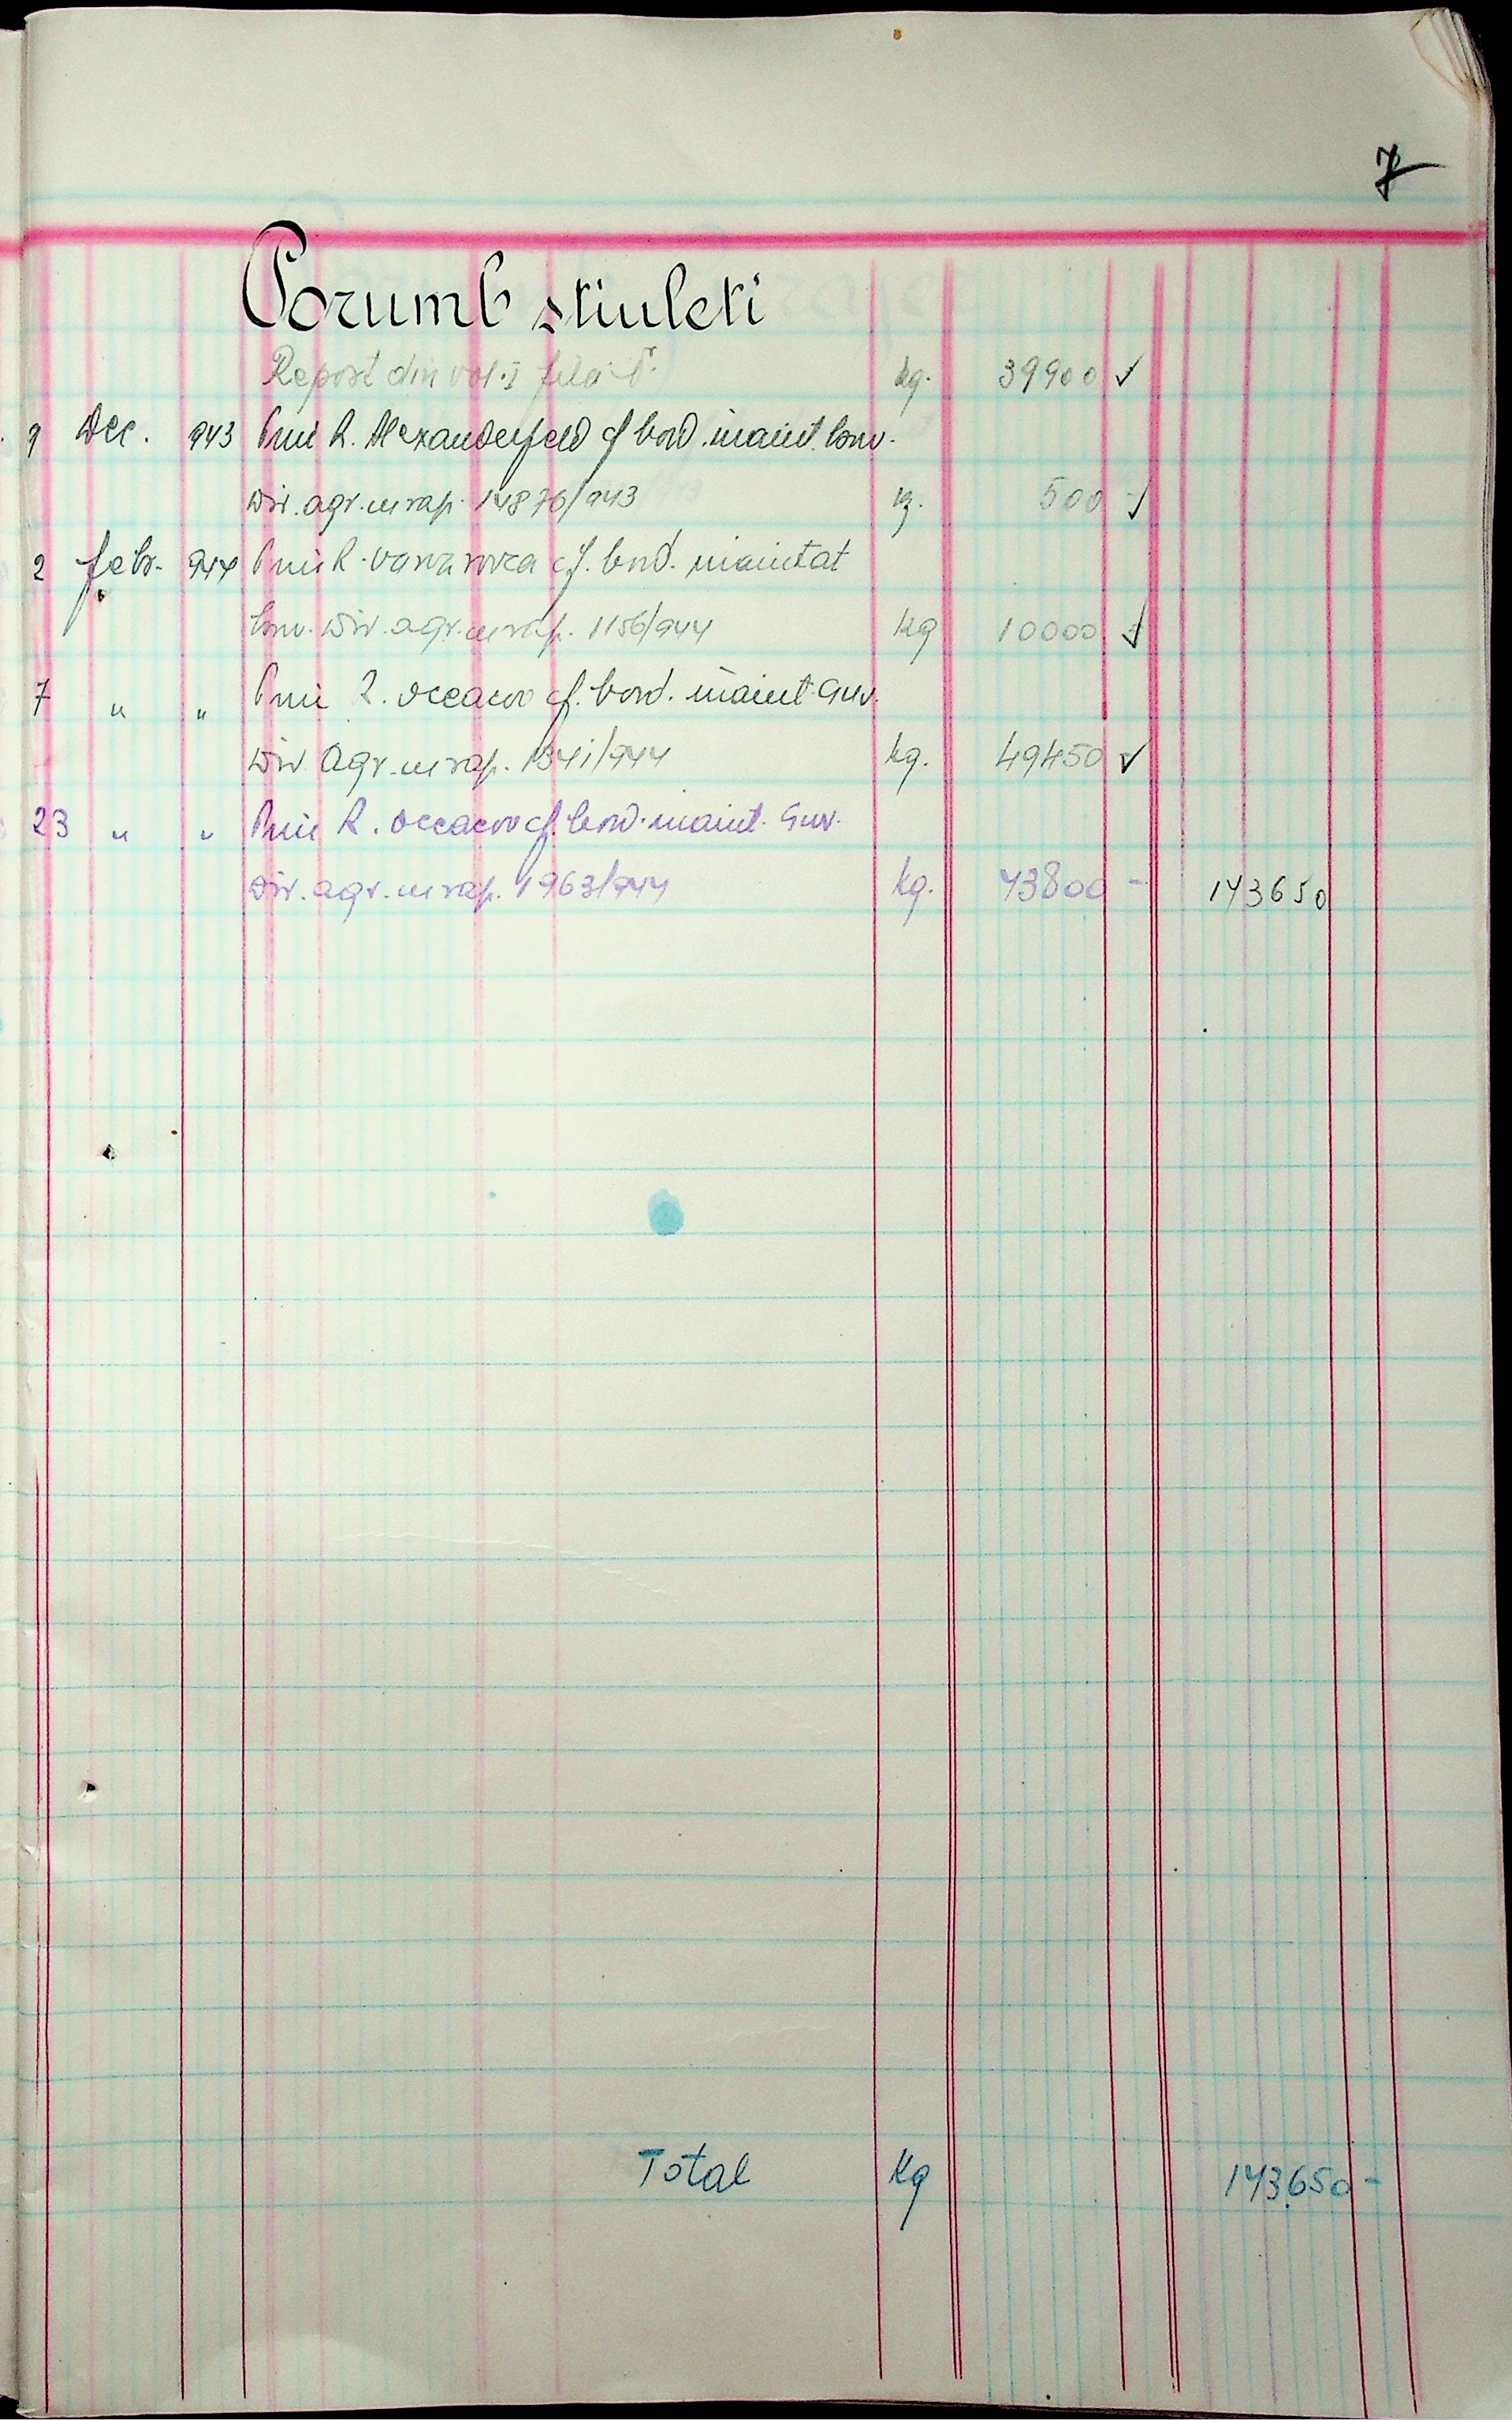 7
Porumb stiuleti
Report din vol. I fila kg. 39900
9 Dec. 943 Prin R. Alexanderfeld cf bord. inaint. Guv.
Dir. agr. cu rap. 14876/943 kg. 500
2 febr. 944 Prin R. cf. bord. inaintat
Guv. Dir. agr. cu rap. 1156/944 kg 10000
7 " " Prin R. Oceacov cf. bord. inaint Guv.
Dir Agr. cu rap. 1341/944 kg. 49450
23 " " Prin R. Oceacov cf. bord. inaint. Guv.
Dir. agr. cu rap. 1963/944 kg. 43800 - 143650
Total Kg 143650 -